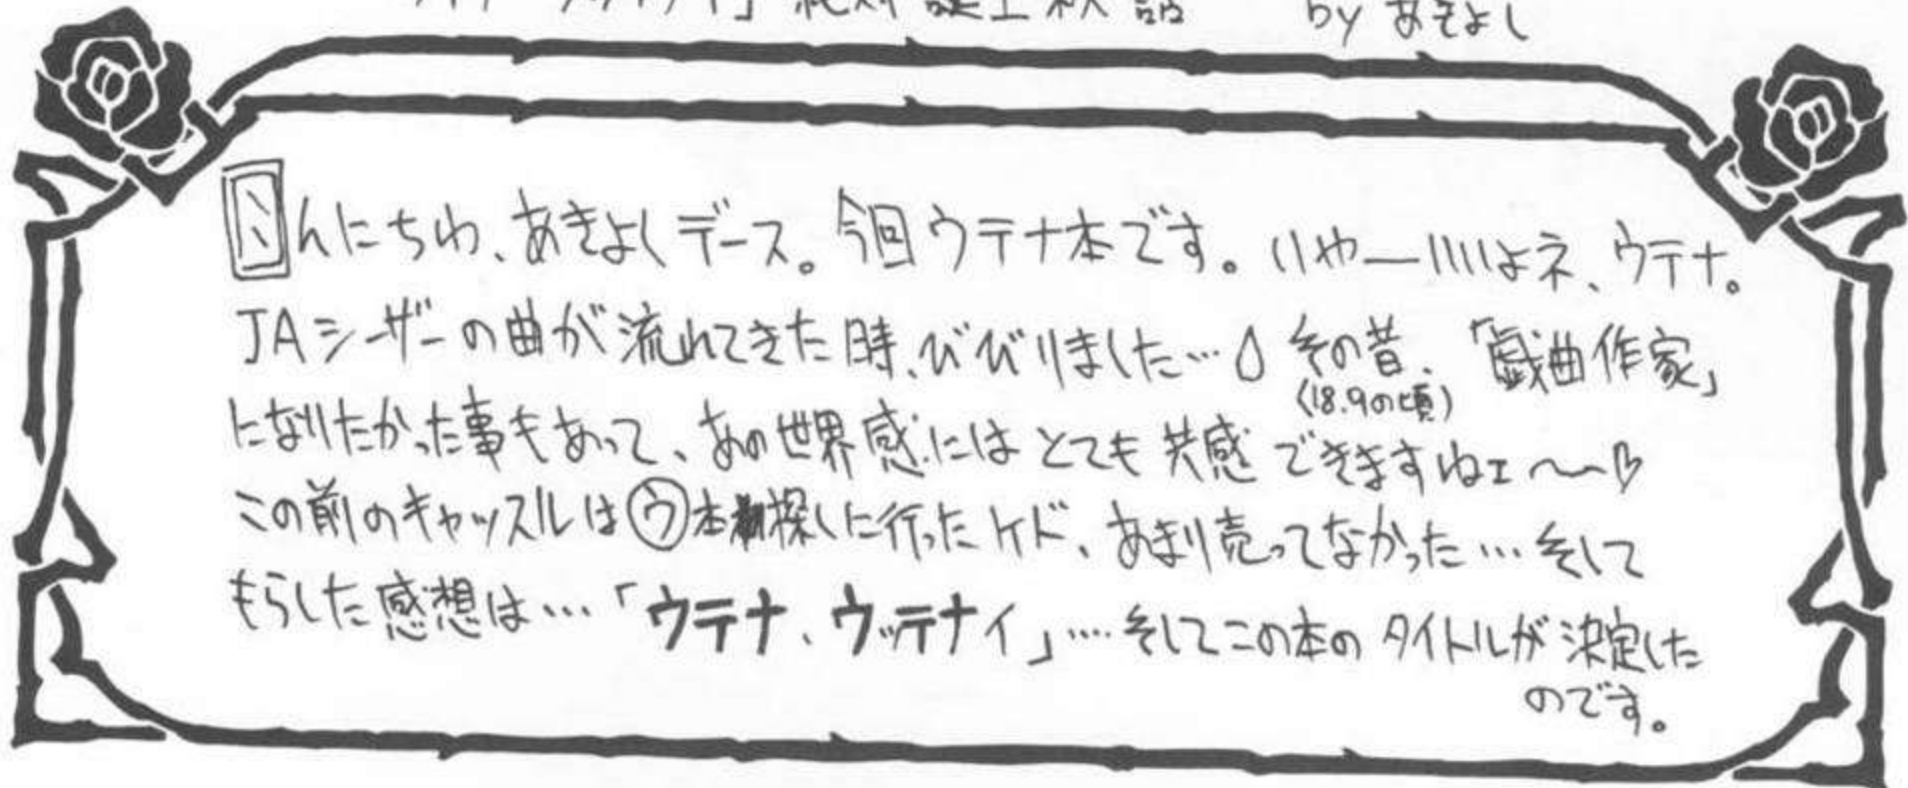 ウテナウッテナイ」絶対誕生秘話 by あきよし
こんにちわ、あきよしデース。今回ウテナ本です。いやーいいよネ、ウテナ。
JAシーザーの曲が流れてきた時、びびりました… その昔、「戯曲作家」
(18.9の頃)
になりたかった事もあって、あの世界感にはとても共感できますねェ〜♡
この前のキャッスルは㋒本探しに行ったケド、あまり売ってなかった…そして
もらした感想は…「ウテナ、ウッテナイ」…. そしてこの本のタイトルが決定した
のです。